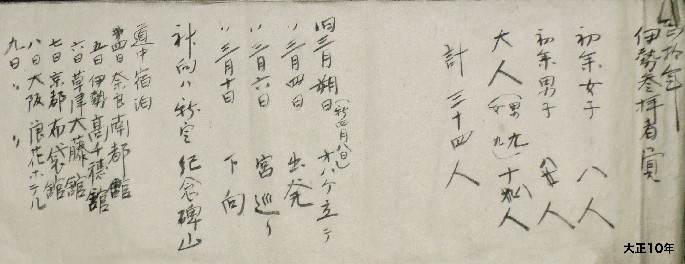 大正拾年
伊勢参拝者員
初参女子 八人
初参男子 八人
大人(男九 女九)十八人
計 三十四人
旧三月朔日(新四月八日)オハケ立テ
〃三月四日 出発
〃三月六日 宮巡り
〃三月十日 下向
道中宿泊
四日奈良南都館
五日伊勢高千穂館
六日草津大藤館
七日京都布袋館
八日大阪浪花ホテル
九日 〃 〃
大正10年